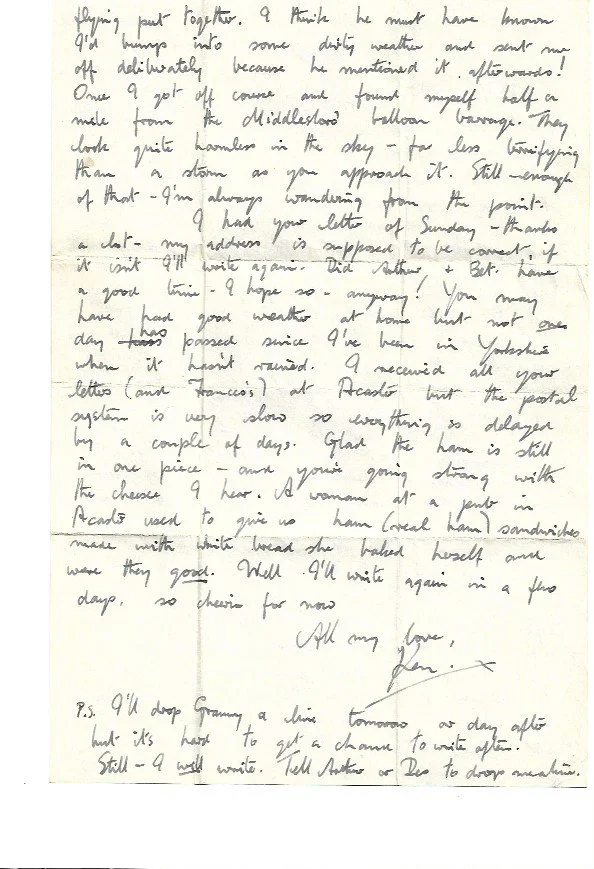 flying put together. I think he must have known
I'd bump into some dirty weather and sent me
off deliberately because he mentioned it afterwards!
Once I got off course and found myself half a
mile from the Middlesboro' balloon barrage. They
look quite harmless in the sky – far less terrifying
than a storm as you approach it. Still – enough
of that – I'm always wandering from the point.
I had your letter of Sunday – thanks
a lot – my address is supposed to be correct, if
it isn't I'll write again. Did Arthur + Bet. have
a good time – I hope so – anyway! You may
have had good weather at home but not one
day has passed since I've been in Yorkshire
when it hasn't rained. I received all your
letters (and Frances's) at Acaster but the postal
system is very slow so everything is delayed
by a couple of days. Glad the ham is still
in one piece – and you're going strong with
the cheese I hear. A woman at a pub in
Acaster used to give us ham (real ham) sandwiches
made with white bread she baked herself and
were they good. Well I'll write again in a few
days, so cheerio for now
All my love,
Ken. x
P.S. I'll drop Granny a line tomorrow or day after
but it's hard to get a chance to write often.
Still – I will write. Tell Arthur or Des to drop me a line.